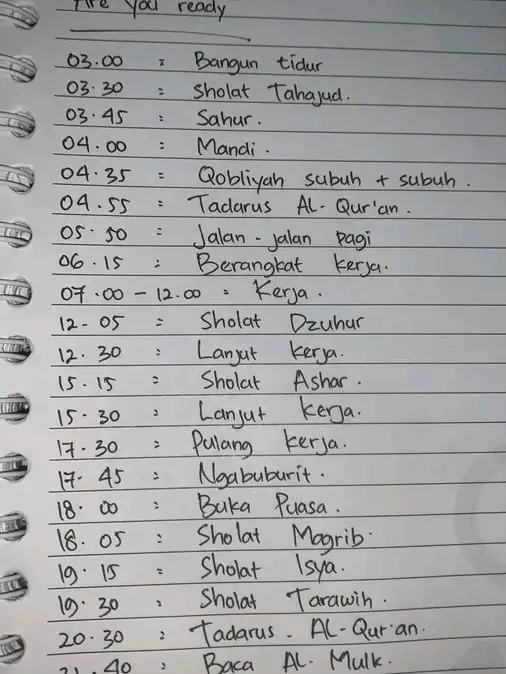 Are you ready
03.00 : Bangun tidur
03.30 : Sholat Tahajud.
03.45 : Sahur.
04.00 : Mandi.
04.35 : Qobliyah subuh + subuh.
04.55 : Tadarus AL-Qur'an.
05.50 : Jalan-jalan pagi
06.15 : Berangkat kerja.
07.00 - 12.00 : Kerja.
12-05 : Sholat Dzuhur
12.30 : Lanjut kerja.
15.15 : Sholat Ashar.
15.30 : Lanjut kerja.
17.30 : Pulang kerja.
17.45 : Ngabuburit.
18.00 : Buka Puasa.
18.05 : Sholat Magrib.
19.15 : Sholat Isya.
19.30 : Sholat Tarawih.
20.30 : Tadarus - AL-Qur'an.
21.40 : Baca AL-Mulk.